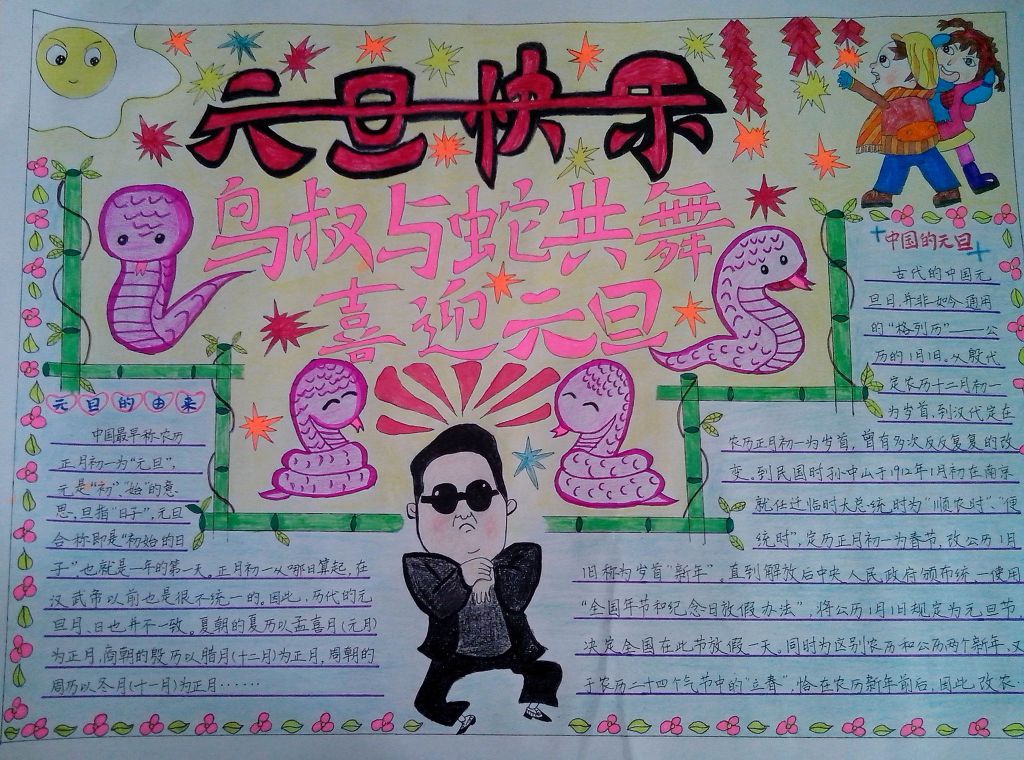 元旦快乐
鸟叔与蛇共舞
喜迎元旦
元旦的由来
中国最早称农历
正月初一为“元旦”,
元是“初”、“始”的意
思,旦指“日子”,元旦
合称即是“初始的日
子”,也就是一年的第一天。正月初一从哪日算起,在
汉武帝以前也是很不统一的。因此,历代的元
旦月、日也并不一致。夏朝的夏历以孟喜月(元月)
为正月,商朝的殷历以腊月(十二月)为正月,周朝的
周历以冬月(十一月)为正月……
中国的元旦
古代的中国元
旦日,并非如今通用
的“格列历”——公
历的1月1日。从殷代
定农历十二月初一
为岁首,到汉代定在
农历正月初一为岁首,曾有多次反反复复的改
变。到民国时孙中山于1912年1月初在南京
就任迁临时大总统,时为“顺农时”、“便
统时”,定历正月初一为春节,改公历1月
1日称为岁首“新年”。直到解放后中央人民政府颁布统一使用
“全国年节和纪念日放假办法”,将公历1月1日规定为元旦节,
决定全国在此节放假一天。同时为区别农历和公历两个新年,又
于农历二十四个气节中的“立春”,恰在农历新年前后,因此,改农…